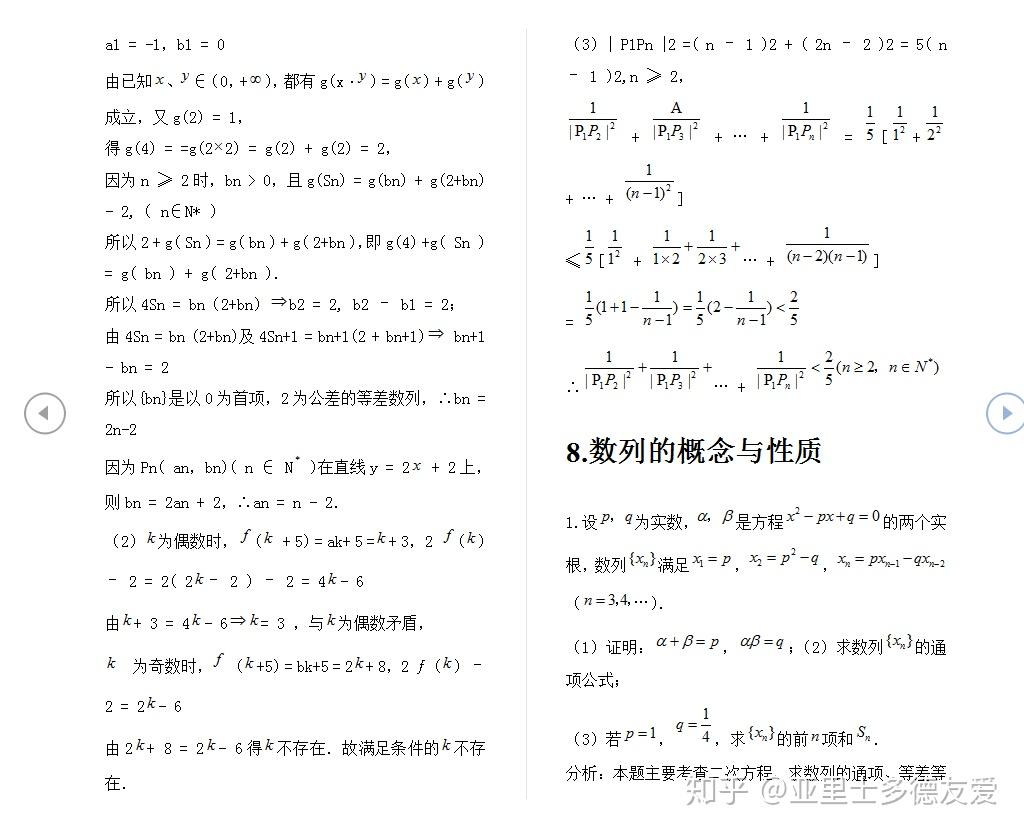 a1 = -1, b1 = 0
由已知x、y∈(0,+∞),都有g(x·y)=g(x)+g(y)
成立,又g(2) = 1,
得g(4) = =g(2×2) = g(2) + g(2) = 2,
因为n ≥ 2时, bn > 0, 且g(Sn) = g(bn) + g(2+bn)
- 2, ( n∈N* )
所以2+g(Sn)=g(bn)+g(2+bn),即g(4)+g( Sn )
= g( bn ) + g( 2+bn ).
所以4Sn = bn (2+bn) ⇒b2 = 2, b2 - b1 = 2;
由4Sn = bn (2+bn)及4Sn+1 = bn+1(2 + bn+1)⇒ bn+1
- bn = 2
所以{bn}是以0为首项,2为公差的等差数列,∴bn =
2n-2
因为Pn( an, bn)( n ∈ N* )在直线y = 2x + 2上,
则bn = 2an + 2, ∴an = n - 2.
(2) k为偶数时, f(k +5)=ak+5=k+3, 2 f(k)
- 2 = 2( 2k- 2 ) - 2 = 4k- 6
由k+ 3 = 4k- 6⇒k= 3 ,与k为偶数矛盾,
k 为奇数时, f (k+5)=bk+5=2k+8, 2 f (k) -
2 = 2k- 6
由2k+ 8 = 2k- 6得k不存在. 故满足条件的k不存
在.
(3)| P1Pn |2 =( n - 1 )2 + ( 2n - 2 )2 = 5( n
- 1 )2,n ≥ 2,
1/|P₁P₂|² + A/|P₁P₃|² + … + 1/|P₁Pₙ|² = 1/5 [ 1/1² + 1/2²
+ … + 1/(n-1)² ]
≤ 1/5 [ 1/1² + 1/1×2 + 1/2×3 + … + 1/(n-2)(n-1) ]
= 1/5(1+1-1/n-1)=1/5(2-1/n-1)<2/5
∴ 1/|P₁P₂|² + 1/|P₁P₃|² + … + 1/|P₁Pₙ|² < 2/5(n≥2, n∈N*)
8.数列的概念与性质
1.设p, q为实数, α, β是方程x²-px+q=0的两个实
根, 数列{xₙ}满足x₁=p, x₂=p²-q, xₙ=pxₙ₋₁-qxₙ₋₂
(n=3,4,…).
(1) 证明: α+β=p, αβ=q;(2) 求数列{xₙ}的通
项公式;
(3) 若p=1, q=1/4, 求{xₙ}的前n项和Sₙ.
分析: 本题主要考查二次方程、求数列的通项、等差等
知乎 @亚里士多德友爱